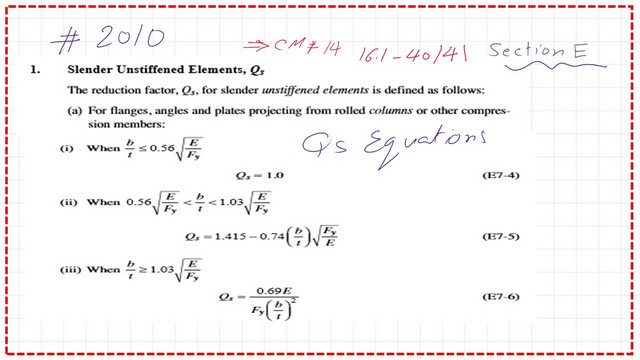 # 2010
⇒ CM # 14 16.1-40/41 Section E
1. Slender Unstiffened Elements, Qs
The reduction factor, Qs, for slender unstiffened elements is defined as follows:
(a) For flanges, angles and plates projecting from rolled columns or other compres-
sion members:
Qs Equations
(i) When b/t ≤ 0.56√(E/Fy)
Qs = 1.0 (E7-4)
(ii) When 0.56√(E/Fy) < b/t < 1.03√(E/Fy)
Qs = 1.415 – 0.74(b/t)√(Fy/E) (E7-5)
(iii) When b/t ≥ 1.03√(E/Fy)
Qs = 0.69E / Fy(b/t)² (E7-6)